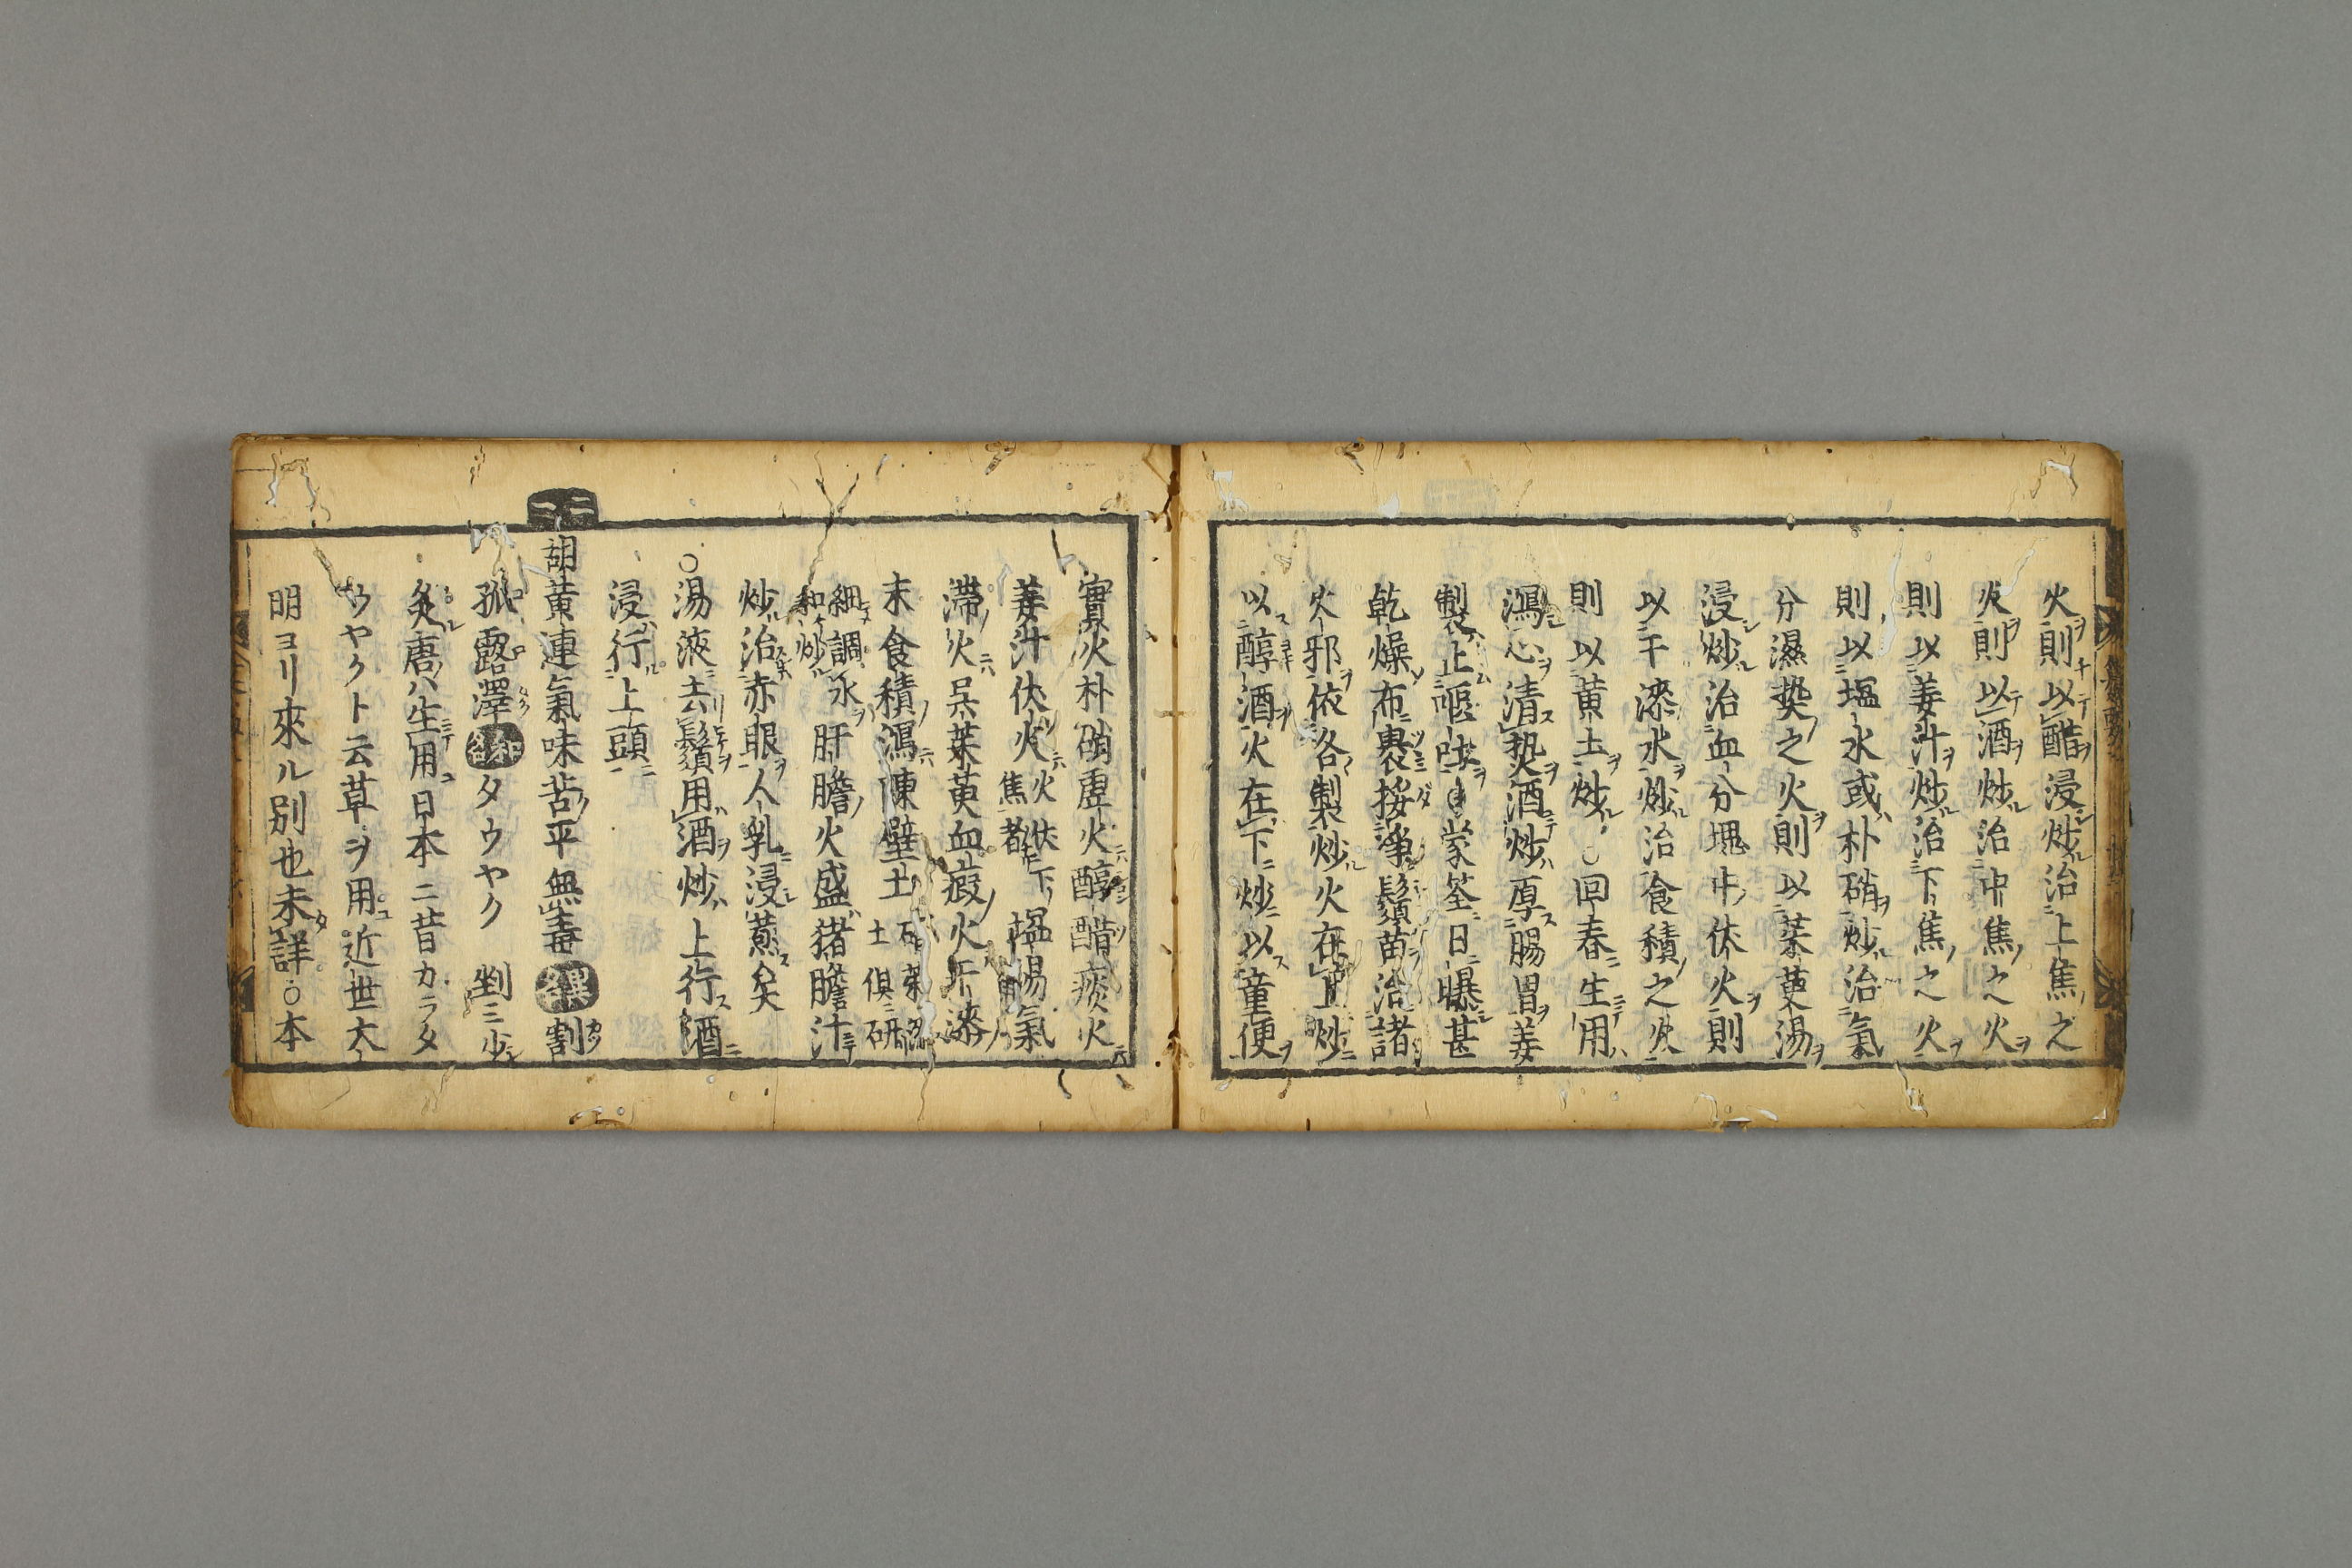 火則以醋浸炒治上焦之
火則以酒炒治中焦之火
則以姜汁炒治下焦之火
則以塩水或朴硝炒治氣
分濕熱之火則以茱萸湯
浸炒治血分塊中伏火則
以干漆水炒治食積之火
則以黄土炒○回春生用
瀉心清熱酒炒厚腸胃姜
製止嘔吐 蒙筌日曝甚
乾燥布裹挼淨鬚苗治諸
火邪依各製炒火在上炒
以醇酒火在下炒以童便
實火朴硝虚火醇醋痰火
姜汁伏火火伏下焦者塩湯氣
滞火吳茱萸血瘕火干漆
末食積瀉陳壁土
細調水和炒肝膽火盛猪膽汁
炒治赤眼人乳浸蒸矣
○湯液去鬚用酒炒上行酒
浸行上頭
胡黄連氣味苦平無毒 割
孤露澤 タウヤク 剉ミ少
炙唐ハ生用日本ニ昔カラタ
ウヤクト云草ヲ用近世大
明ヨリ來ル別也未詳○本